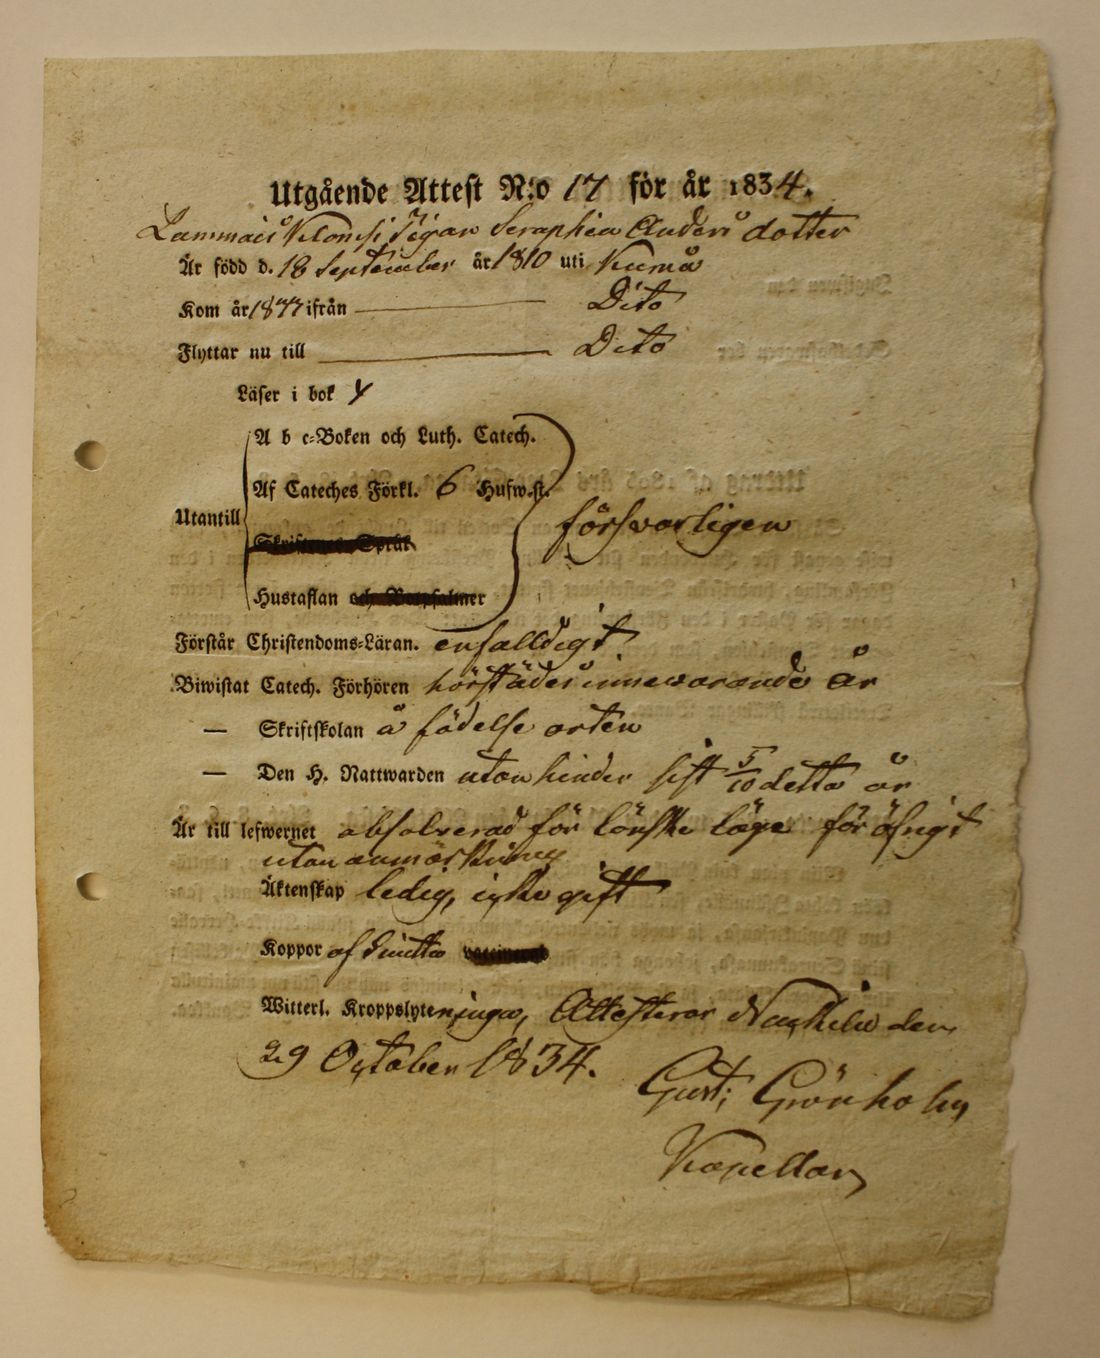 Utgående Attest N:o 17 för år 1834.
Seraphia Anders dotter
Är född d. 18 September år 1810 uti Kumå
Kom år 1833 ifrån — Dito
Flyttar nu till — Dito
Läser i bok
A b c-Boken och Luth. Catech.
Af Cateches Förkl. 6 Hufw.st.
Utantill försvarligen
Skriftenes Språk
Hustaflan och Botpsalmer
Förstår Christendoms-Läran. enfalldigt
Biwistat Catech. Förhören härstädes innevarande år
— Skriftskolan å födelse orten
— Den H. Nattwarden utan hinder sist 5/10 detta år
Är till lefwernet absolverad för lönske läge för öfrigt
utan anmärkning
Äktenskap ledig, icke gift
Koppor af smitta vaccinerat
Witterl. Kroppslyten, inga, Attesterar den
29 October 1834.
Gust; Grönholm
Kapellan